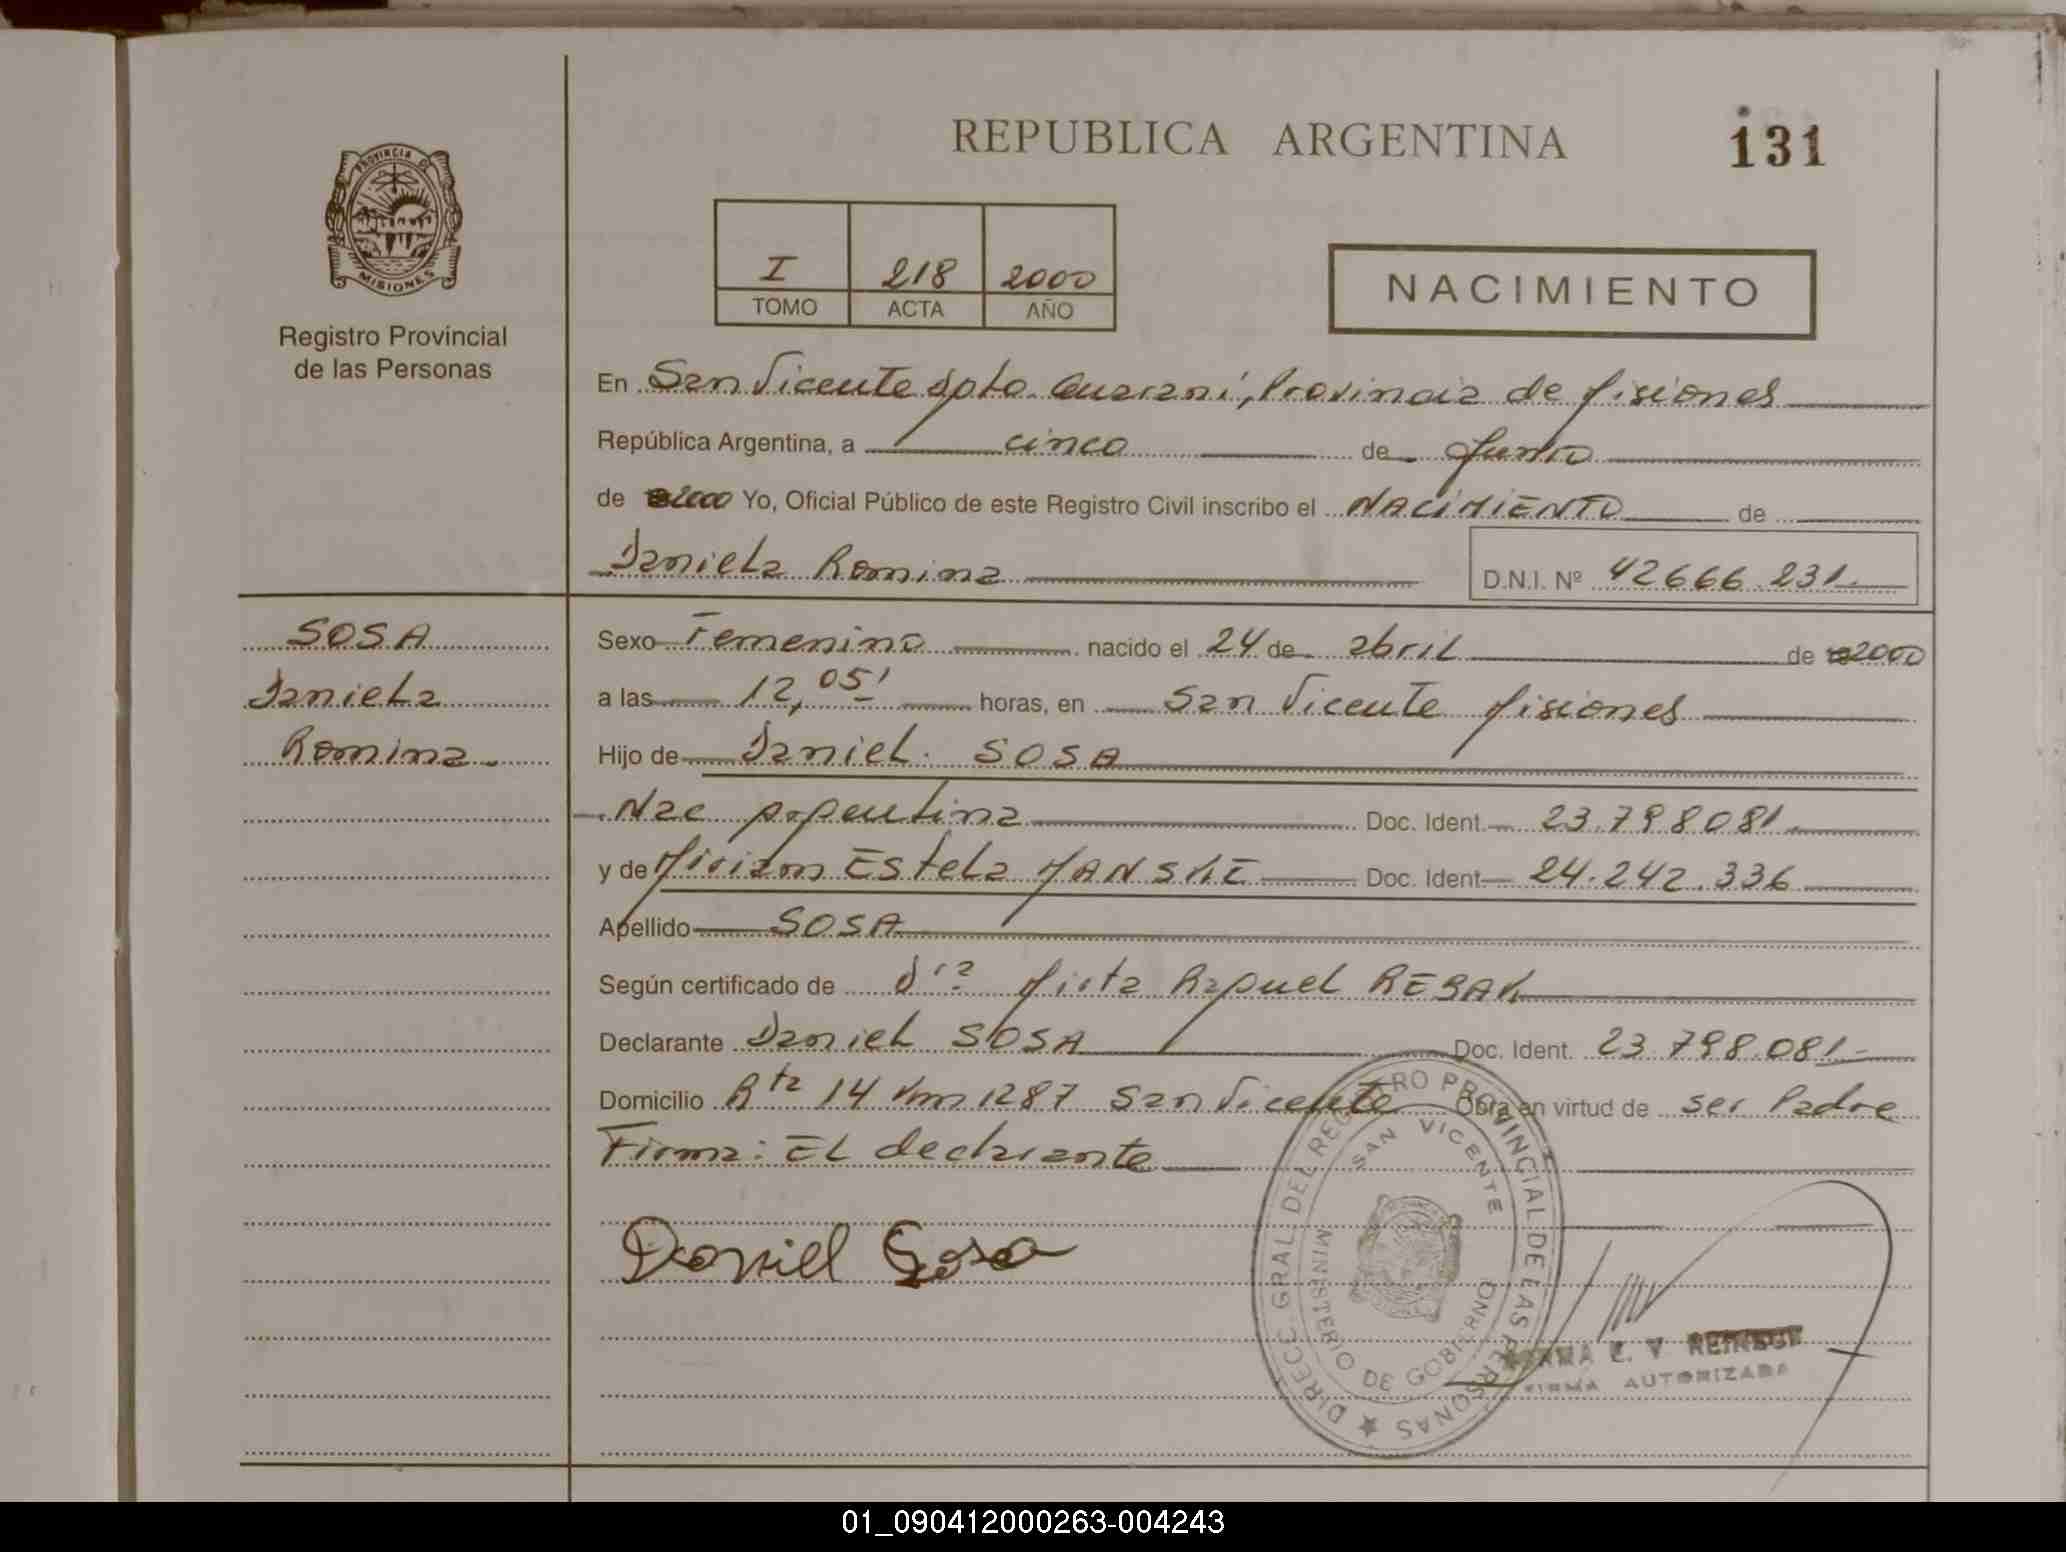 REPUBLICA ARGENTINA
131
PROVINCIA DE
MISIONES
Registro Provincial
de las Personas
I 218 2000
TOMO ACTA AÑO
NACIMIENTO
En San Vicente dpto. Guaraní, Provincia de Misiones
República Argentina, a cinco de Junio
de 2000 Yo, Oficial Público de este Registro Civil inscribo el NACIMIENTO de
Daniela Romina D.N.I. Nº 42666.231.
SOSA
Daniela
Romina.
Sexo Femenino nacido el 24 de abril de 2000
a las 12,05' horas, en San Vicente Misiones
Hijo de Daniel SOSA
Nac Argentina Doc. Ident. 23.798081.
y de Miriam Estela MANSKE Doc. Ident 24.242.336
Apellido SOSA
Según certificado de Dra Mirta Raquel
Declarante Daniel SOSA Doc. Ident. 23.798.081-
Domicilio Rta 14 Km 1287 San Vicente Obra en virtud de ser Padre
Firma: El declarante
Daniel Sosa
DIRECC. GRAL. DEL REGISTRO PROVINCIAL DE LAS PERSONAS
SAN VICENTE
MINISTERIO DE GOBIERNO
FIRMA AUTORIZADA
01_090412000263-004243